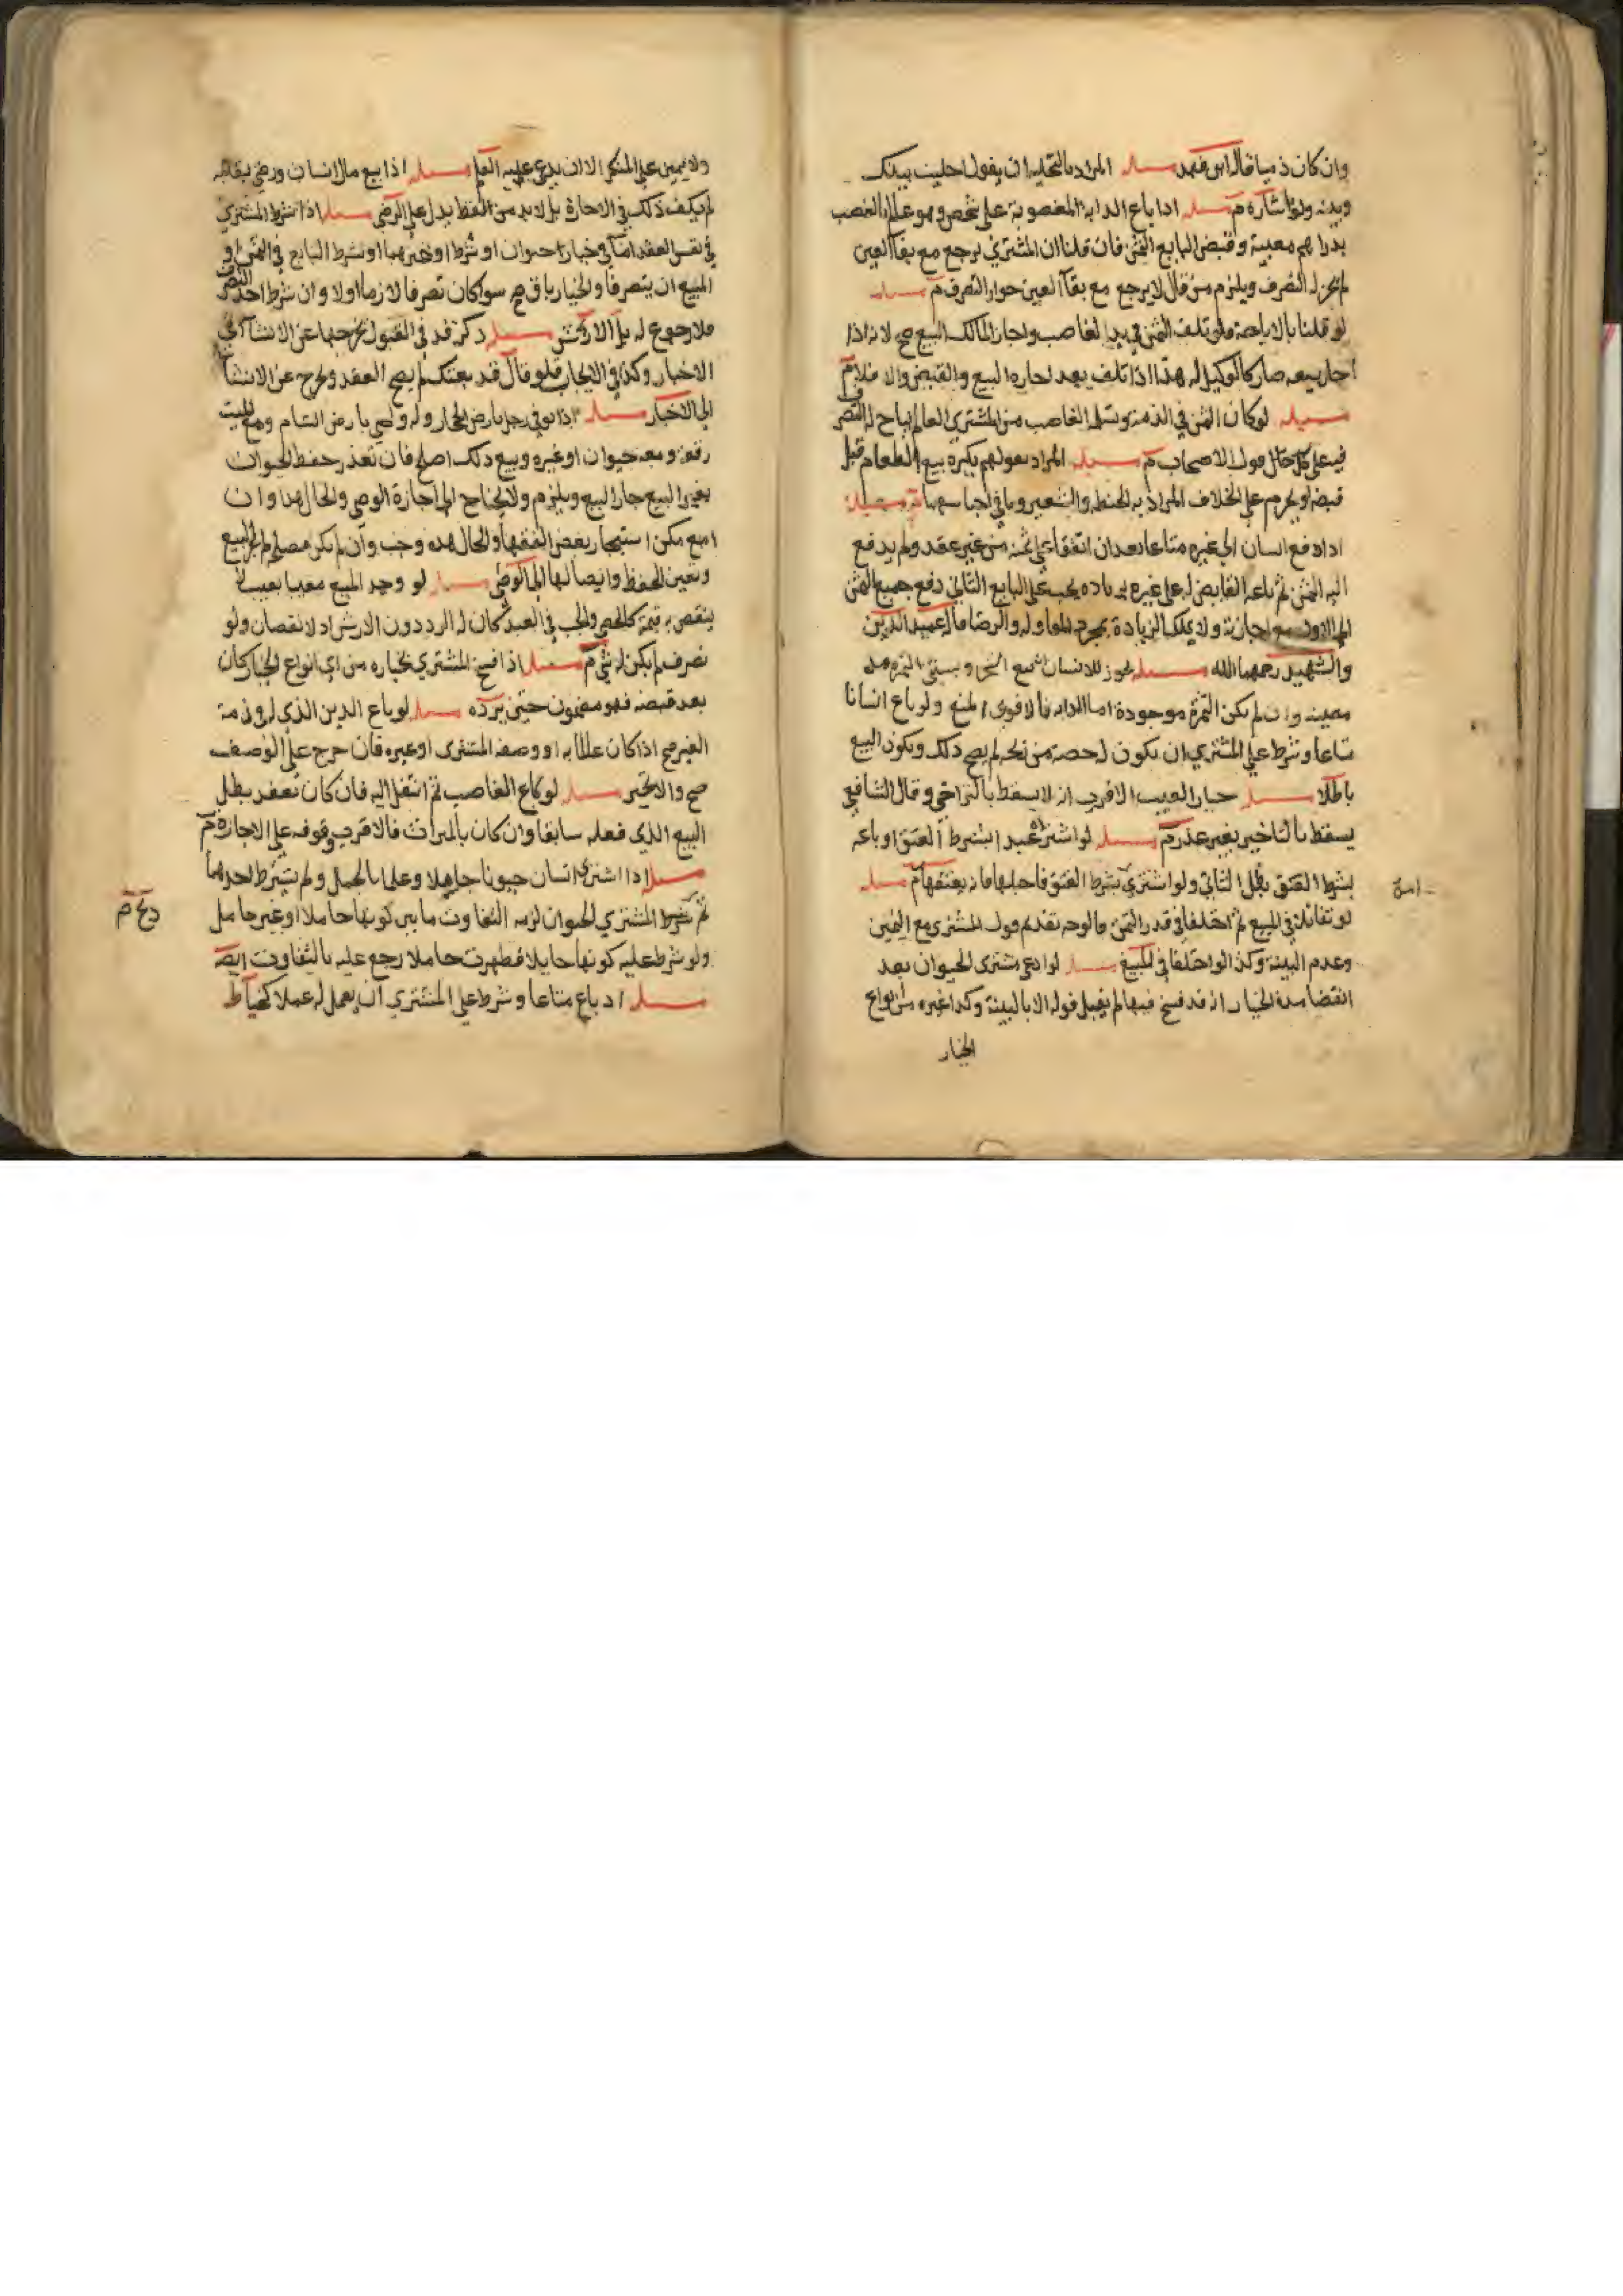 وان كان ذميا قاله ابن فهد مسله المراد بالتخليه ان يقول خليت بينك
وبينه ولو اشاره م مسله اذا باع الدابه المغصوبة على شخص وهو عالم بالغصب
بدراهم معيبة وقبض البايع الثمن فان قلنا ان المشتري يرجع مع بقآ العين
لم يجز له التصرف ويلزم من قال لا يرجع مع بقآ العين جواز التصرف م مسله
لو قلنا بالاباحة فلو تلف الثمن في يد الغاصب واجاز المالك البيع صح لانه اذا
اجاز بيعه صار كالوكيل له هذا اذا تلف بعد اجازه البيع والقبض والا فلا م
مسله لو كان الثمن في الذمة وتسلم الغاصب من المشتري العالم اباح له التصرف
فيه على كل حال قول الاصحاب م مسله المراد بقولهم يكره بيع الطعام قبل
قبضه او يحرم على الخلاف المراد به الحنطه والشعير وباقي اجناسهما مسله
اذا دفع انسان الى غيره متاعا بعد ان اتفقا على ثمنه من غير عقد ولم يدفع
اليه الثمن ثم باعه القابض له على غيره بزياده يجب على البايع الثاني دفع جميع الثمن
الى الاول مع اجازته ولا يملك الزيادة بمجرد المقاوله والرضا قاله عميد الدين
والشهيد رحمهما الله مسله يجوز للانسان يبيع الشجر ويستثني الثمره مده
معينه وان لم يكن الثمرة موجودة اما الدابه فالاقوى المنع ولو باع انسانا
متاعا وشرط على المشتري ان يكون له حصة من نخله لم يصح ذلك ويكون البيع
باطلا مسله خيار العيب الاقرب انه لا يسقط بالتراخي وقال الشافعي
يسقط بالتاخير بغير عذر م مسله لو اشترى عبدا بشرط العتق او باعه
بشرط العتق بطل الثاني ولو اشترى بشرط العتق فاحبلها فانه يعتقها م مسله
لو تقايلا في المبيع ثم اختلفا في قدر الثمن فالوجه تقديم قول المشتري مع اليمين
وعدم البينة وكذا لو اختلفا في المبيع مسله لو ادعى مشتري الحيوان بعد
انقضا مدة الخيار انه قد فسخ فيها لم يقبل قوله الا بالبينة وكذا غيره من انواع
الخيار
ولا يمين على المنكر الا ان يدعي عليه العلم مسله اذا بيع مال انسان ورضي بقلبه
لم يكف ذلك في الاجازة بل لا بد من لفظ يدل على الرضى مسله اذا شرط المشتري
في نفس العقد اما في خيار الحيوان او شرط او غيرهما او شرط البايع في الثمن او
المبيع ان يتصرفا والخيار باق صح سوا كان تصرفا لازما او لا وان شرط احد التصرف
فلا رجوع له بل الارش مسله ذكر قد في القبول يخرجها عن الانشآ الى
الاخبار وكذا في الايجاب فلو قال قد بعتك لم يصح العقد ويخرج عن الانشآ
الى الاخبار مسله اذا توفي رجل بارض الحجاز وله وصي بارض الشام ومع الميت
رفقة ومعه حيوان او غيره وبيع ذلك اصلح فان تعذر حفظ الحيوان
بغير البيع جاز البيع ويلزم ولا يحتاج الى اجازة الوصي والحال هذه وان
امكن استيجار بعض الفقها والحال هذه وجب وان لم يكن مصلح لم يجز البيع
وتعين الحفظ وايصالها الى الوصي مسله لو وجد المبيع معيبا بعيب لا
ينقص به قيمته كالخصي والجب في العبد كان له الرد دون الارش اذ لا نقصان ولو
تصرف لم يكن له شي م مسله اذا فسخ المشتري بخياره من اي انواع الخيار كان
بعد قبضه فهو مضمون حتى يرده مسله لو باع الدين الذي له في ذمة
الغير صح اذا كان عالما به او وصفه المشتري او غيره فان خرج على الوصف
صح والا تخير مسله لو باع الغاصب ثم انتقل اليه فان كان بعقد بطل
البيع الذي فعله سابقا وان كان بالميراث فالاقرب وقوفه على الاجازه م
مسله اذا اشترى انسان حيوانا جاهلا وعلما بالحمل ولم يشترط احدهما
ثم شرط المشتري الحيوان لزمه التفاوت ما بين كونها حاملا او غير حامل
ولو شرط عليه كونها حايلا فظهرت حاملا رجع عليه بالتفاوت ايضا
مسله اذ باع متاعا وشرط على المشتري ان يعمل له عملا كخياطة